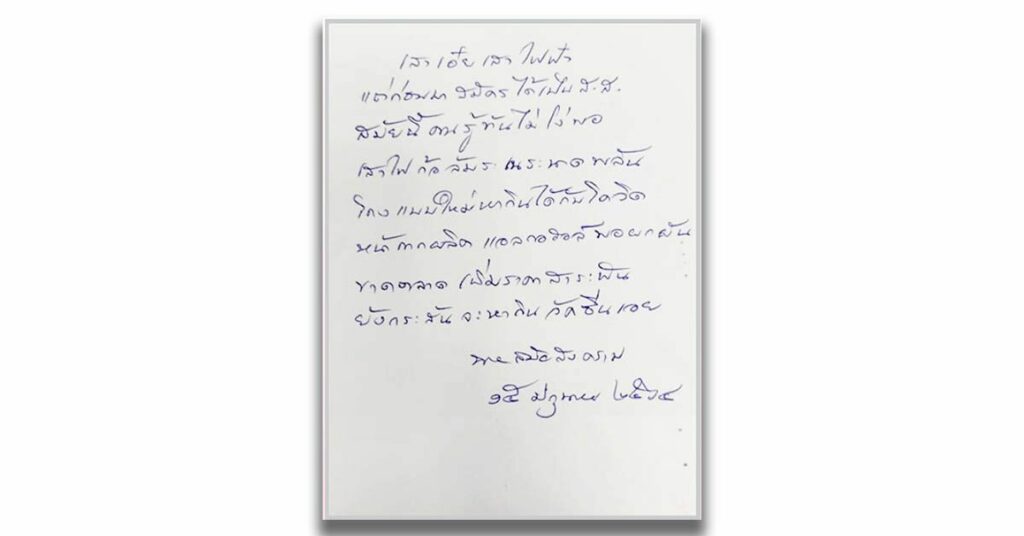 เสาเอ๋ย เสาไฟฟ้า
แต่ก่อนมา สมัครได้เป็น ส.ส.
สมัยนี้ คนรู้ทันไม่โง่พอ
เสาไฟ ก้อ ล้มระเนระนาดพลัน
โกงแบบใหม่หากินได้กับโควิด
หน้ากากผลิต แอลกอฮอล์ พอยกผัน
ขาดตลาด เพิ่มราคา สาระพัน
ยังกระสัน จะหากิน วัคซีนเอย
๑๕ ๒๕๖๔